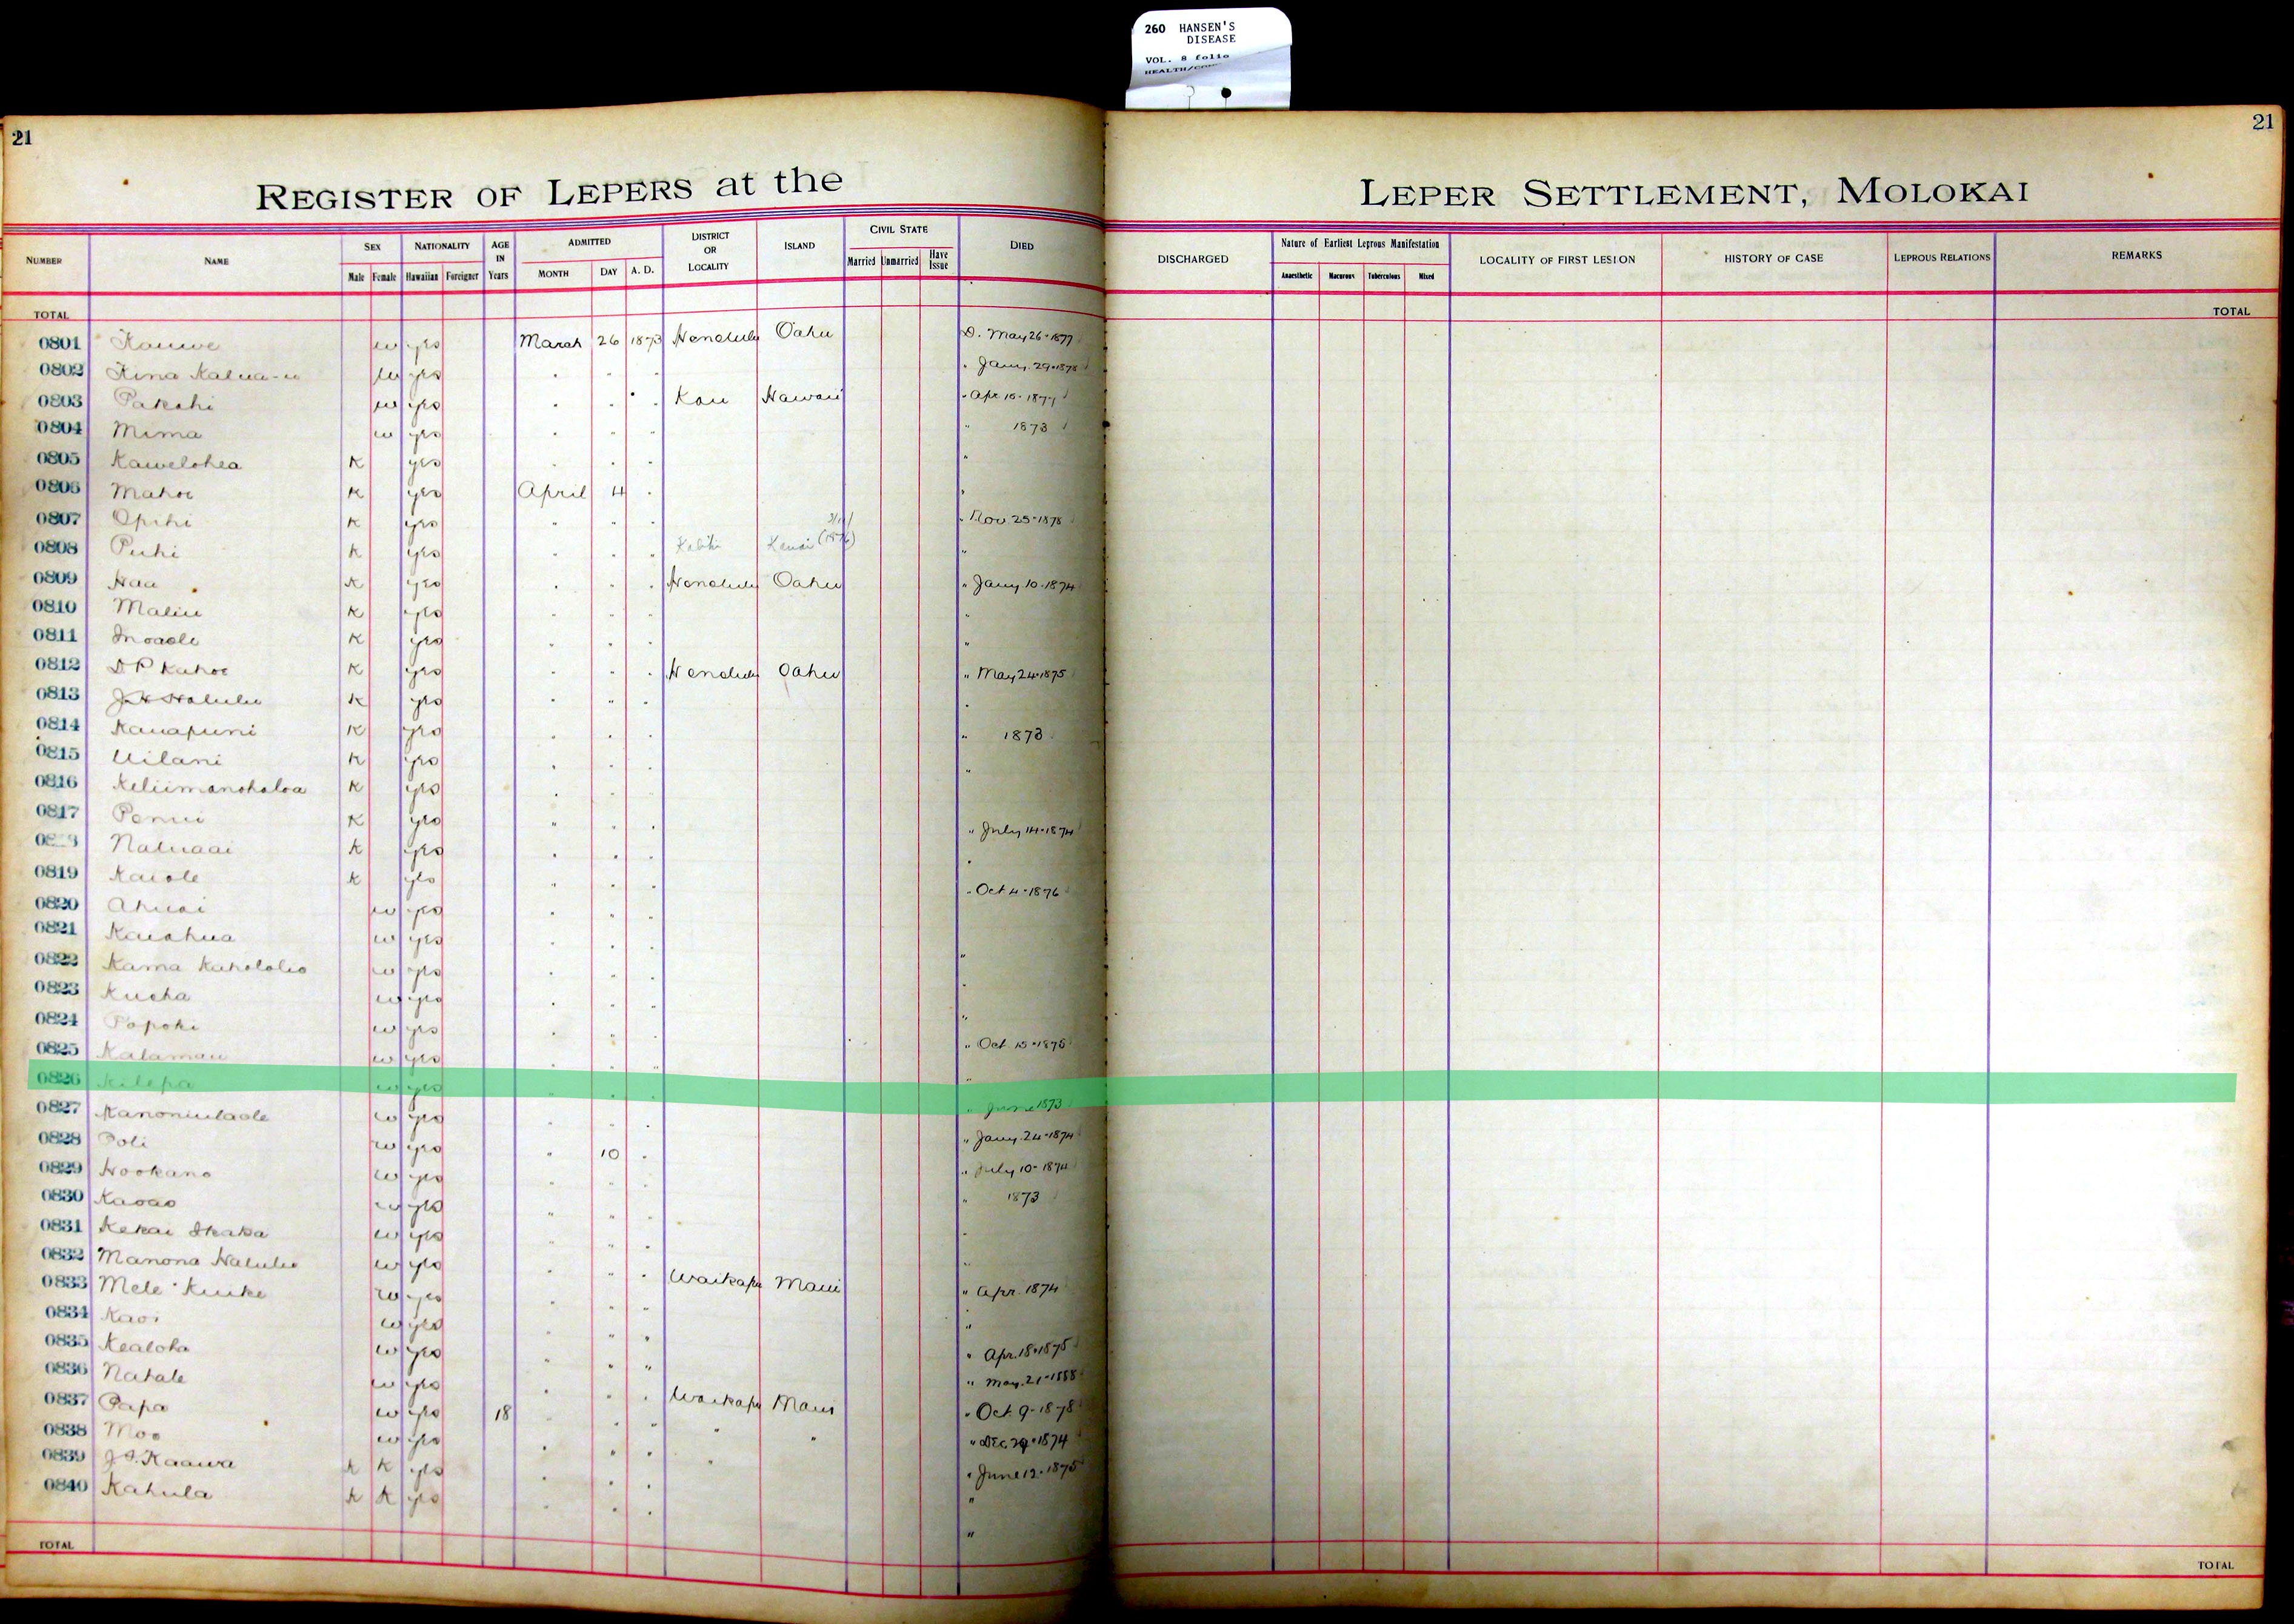 260 HANSEN'S
DISEASE
VOL. 8 folio
21
21
REGISTER OF LEPERS at the LEPER SETTLEMENT, MOLOKAI
NUMBER NAME SEX Male Female NATIONALITY Hawaiian Foreigner AGE IN Years ADMITTED MONTH DAY A. D. DISTRICT OR LOCALITY ISLAND CIVIL STATE Married Unmarried Have Issue DIED DISCHARGED Nature of Earliest Leprous Manifestation Anaesthetic Macurous Tuberculous Mixed LOCALITY OF FIRST LESION HISTORY OF CASE LEPROUS RELATIONS REMARKS
TOTAL TOTAL
0801 Kauwe w yes March 26 1873 Honolulu Oahu D. May 26-1877
0802 w yes " " " " Jany. 29-1878
0803 Pakahi w yes " " " Kau Hawaii " Apr 16-1877
0804 Mima w yes " " " " 1873
0805 Kawelohea K yes " " " "
0806 Mahoe K yes April 4 " "
0807 Opihi K yes " " " " Nov. 25-1878
0808 Puhi K yes " " " Kauai "
0809 Hau K yes " " " Honolulu Oahu " Jany 10-1874
0810 Maliu K yes " " " "
0811 Moaole K yes " " " "
0812 D P Kahoe K yes " " " Honolulu Oahu " May 24-1875
0813 Halulu K yes " " " "
0814 Kauapuni K yes " " " " 1873
0815 Uilani K yes " " " "
0816 Keliimanoholoa K yes " " "
0817 Penui K yes " " " " July 14-1874
Naluaai K yes " " " "
0819 Kaiole K yes " " " " Oct 4-1876
0820 Ahuai w yes " " "
0821 Kaiahua w yes " " " "
0822 Kama Kahololio w yes " " " "
0823 Kueha w yes " " " "
0824 Popoki w yes " " " " Oct. 15-1875
0825 Kalamau w yes " " " "
0826 Kilepa w yes " " " June 1873
0827 Kanoniulaole w yes " " " " Jany. 24-1874
0828 Poli w yes " 10 " " July 10-1874
0829 Hookano w yes " " " " 1873
0830 Kaoao w yes " " "
0831 Kekai w yes " " " "
0832 Manona Halulu w yes " " " "
0833 Mele Kuike w yes " " " Waikapu Maui " Apr. 1874
0834 Kaoi w yes " " " "
0835 Kealoha w yes " " " " Apr. 18-1875
0836 Nakale w yes " " " " May. 21-1888
0837 Papa w yes 18 " " " Waikapu Maui " Oct. 9-1878
0838 Moo w yes " " " " " " Dec 29-1874
0839 Kaawa K K yes " " " " " June 12-1875
0840 Kahula K K yes " " " "
TOTAL TOTAL